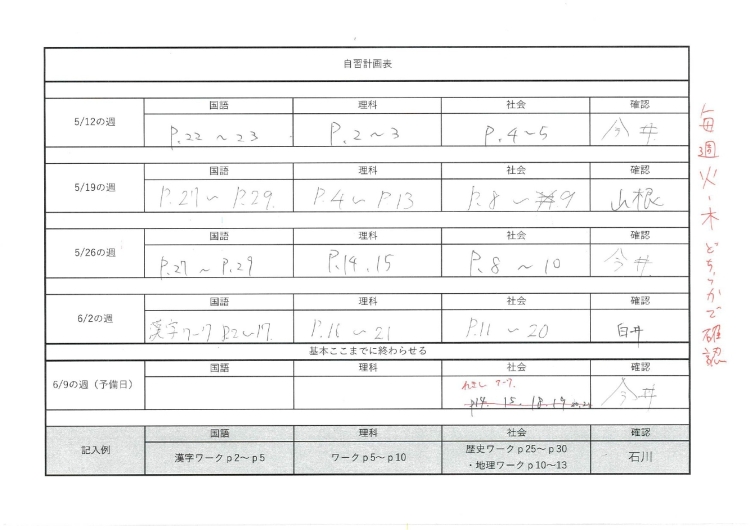 自習計画表
国語 理科 社会 確認
5/12の週 P.22〜23 P.2〜3 P.4〜5 今井
国語 理科 社会 確認
5/19の週 P.27〜P.29 P.4〜P.13 P.8〜9 山根
国語 理科 社会 確認
5/26の週 P.27〜P.29 P.14.15 P.8〜10 今井
国語 理科 社会 確認
6/2の週 漢字ワークP2〜17. P.16〜21 P.11〜20 白井
基本ここまでに終わらせる
国語 理科 社会 確認
6/9の週(予備日) 今井
p14. 15. 18. 19
国語 理科 社会 確認
記入例 漢字ワークp2〜p5 ワークp5〜p10 歴史ワークp25〜p30 石川
・地理ワークp10〜13
毎週火・木どちらかで確認